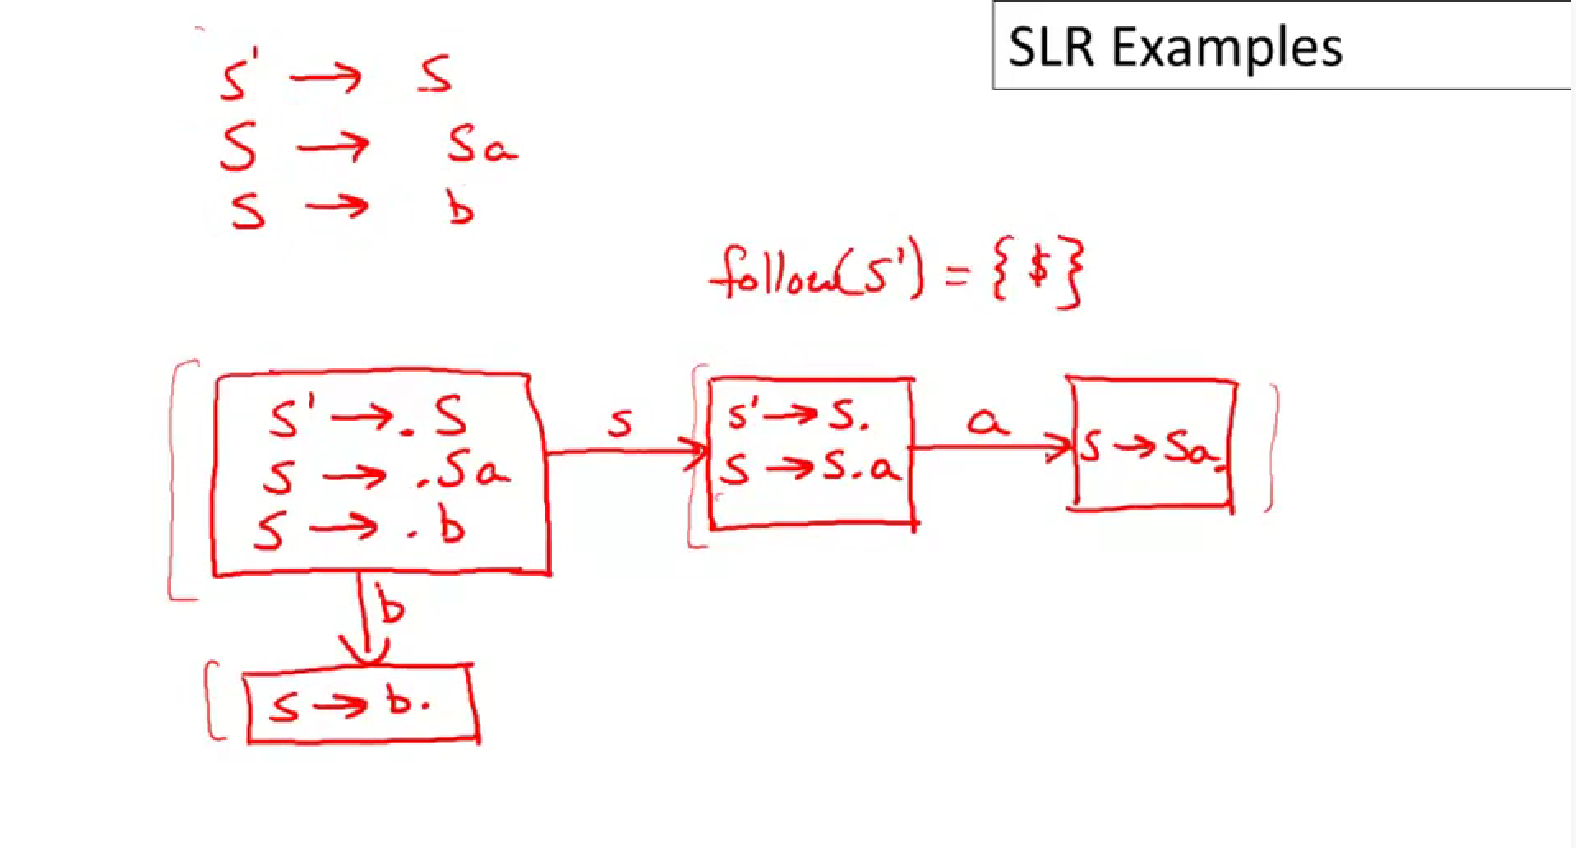 SLR Examples
S' → S
S → Sa
S → b
follow(S') = {$}
S' → .S
S → .Sa
S → .b
S
S' → S.
S → S.a
a
S → Sa.
b
S → b.